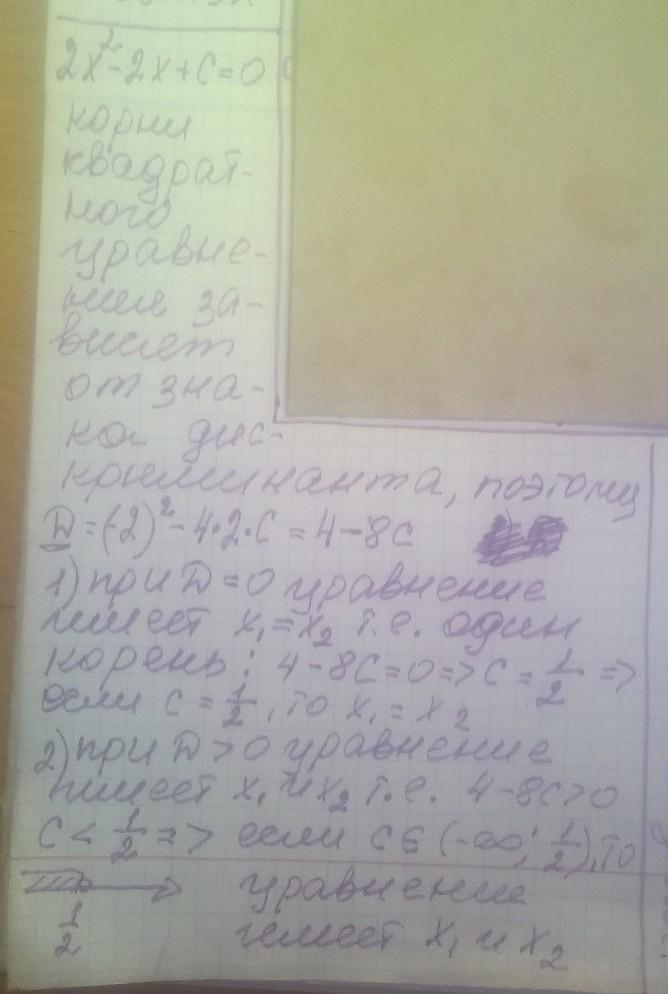 2x²-2x+c=0
корни
квадрат-
ного
уравне-
ния за-
висят
от зна-
ка дис-
криминанта, поэтому
D=(-2)²-4·2·c=4-8c
1) при D=0 уравнение
имеет x₁=x₂ т.е. один
корень: 4-8c=0=>c=1/2=>
если c=1/2, то x₁=x₂
2) при D>0 уравнение
имеет x₁ и x₂ т.е. 4-8c>0
c<1/2=> если c∈(-∞;1/2), то
уравнение
1/2 имеет x₁ и x₂